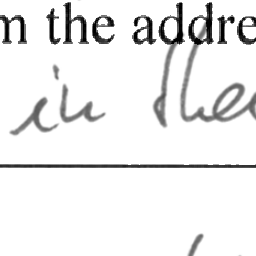 m the addre
in the